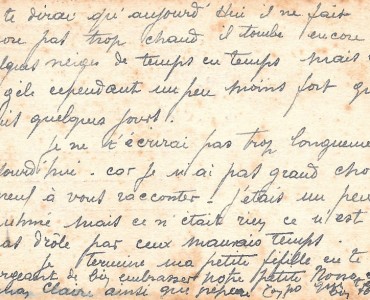 te dirai qu'aujourd'hui il ne fait
ore pas trop chaud il tombe encore
lques neiges de temps en temps mais
gele cependant un peu moins fort qu
uis quelques jours.
Je ne t'écrirai pas trop longueme
jourd'hui. car je n'ai pas grand cho
neuf à vous raconter. j'étais un peu
rhumé mais ce n'était rien ce n'est
as drôle par ceux mauvais temps.
Je termine ma petite fifille en te
argeant de bien embrasser notre petite
Claire ainsi que pépère